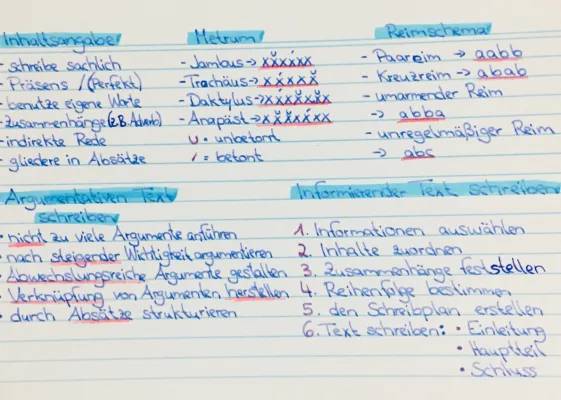 Inhaltsangabe
- schreibe sachlich
- Präsens /(Perfekt)
- benutze eigene Worte
- Zusammenhänge (z.B. Adverb)
- indirekte Rede
- gliedere in Absätze
Metrum
- Jambus → x̆x́x̆x́x
- Trochäus → x́x̆x́x̆
- Daktylus → x́x̆x̆x́x̆x̆
- Anapäst → x̆x̆x́x̆x̆x́
∪ = unbetont
/ = betont
Reimschema
- Paarreim → aabb
- Kreuzreim → abab
- umarmender Reim
→ abba
- unregelmäßiger Reim
→ abc
Argumentativen Text
schreiben
• nicht zu viele Argumente anführen
• nach steigender Wichtigkeit argumentieren
• Abwechslungsreiche Argumente gestalten
• Verknüpfung von Argumenten herstellen
• durch Absätze strukturieren
Informierender Text schreiben
1. Informationen auswählen
2. Inhalte zuordnen
3. Zusammenhänge feststellen
4. Reihenfolge bestimmen
5. den Schreibplan erstellen
6. Text schreiben: • Einleitung
• Hauptteil
• Schluss